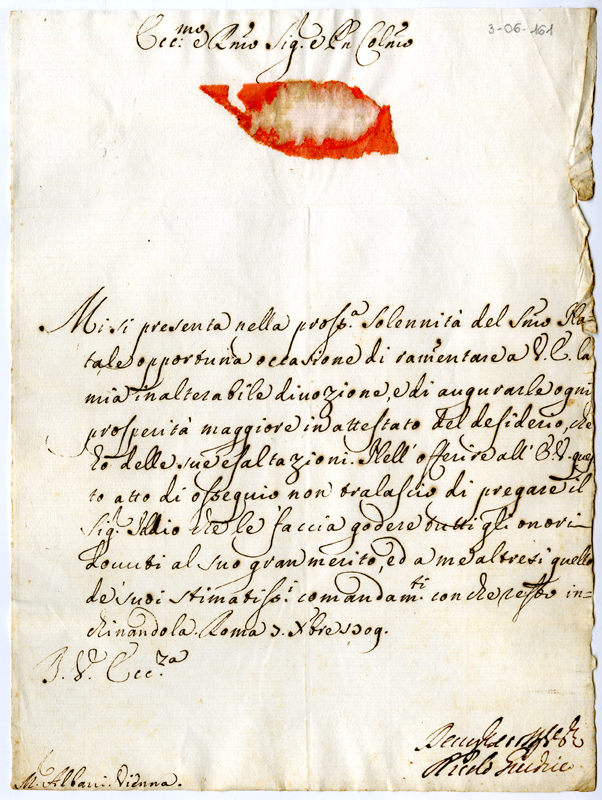 3-06-161
Ecc.mo e Rmo Sig.e e Pn Colmo
Mi si presenta nella prosp.a solennità del Smo Na=
tale opportuna occasione di ramentare a V. E. la
mia inalterabile divozione, e di augurarle ogni
prosperità maggiore in attestato del desiderio, che
hò delle sue esaltazioni. Nell' offerire all' E.V. ques
to atto di ossequio non tralascio di pregare il
Sig.r Iddio che le faccia godere tutti gli onori
dovuti al suo gran merito, ed a me altresi quello
de' suoi stimatiss.i comandam.ti con che resto in=
chinandola. Roma 7. Xbre 1709.
B. V. Ecc.za
Niccolò
M. Albani. Vienna.